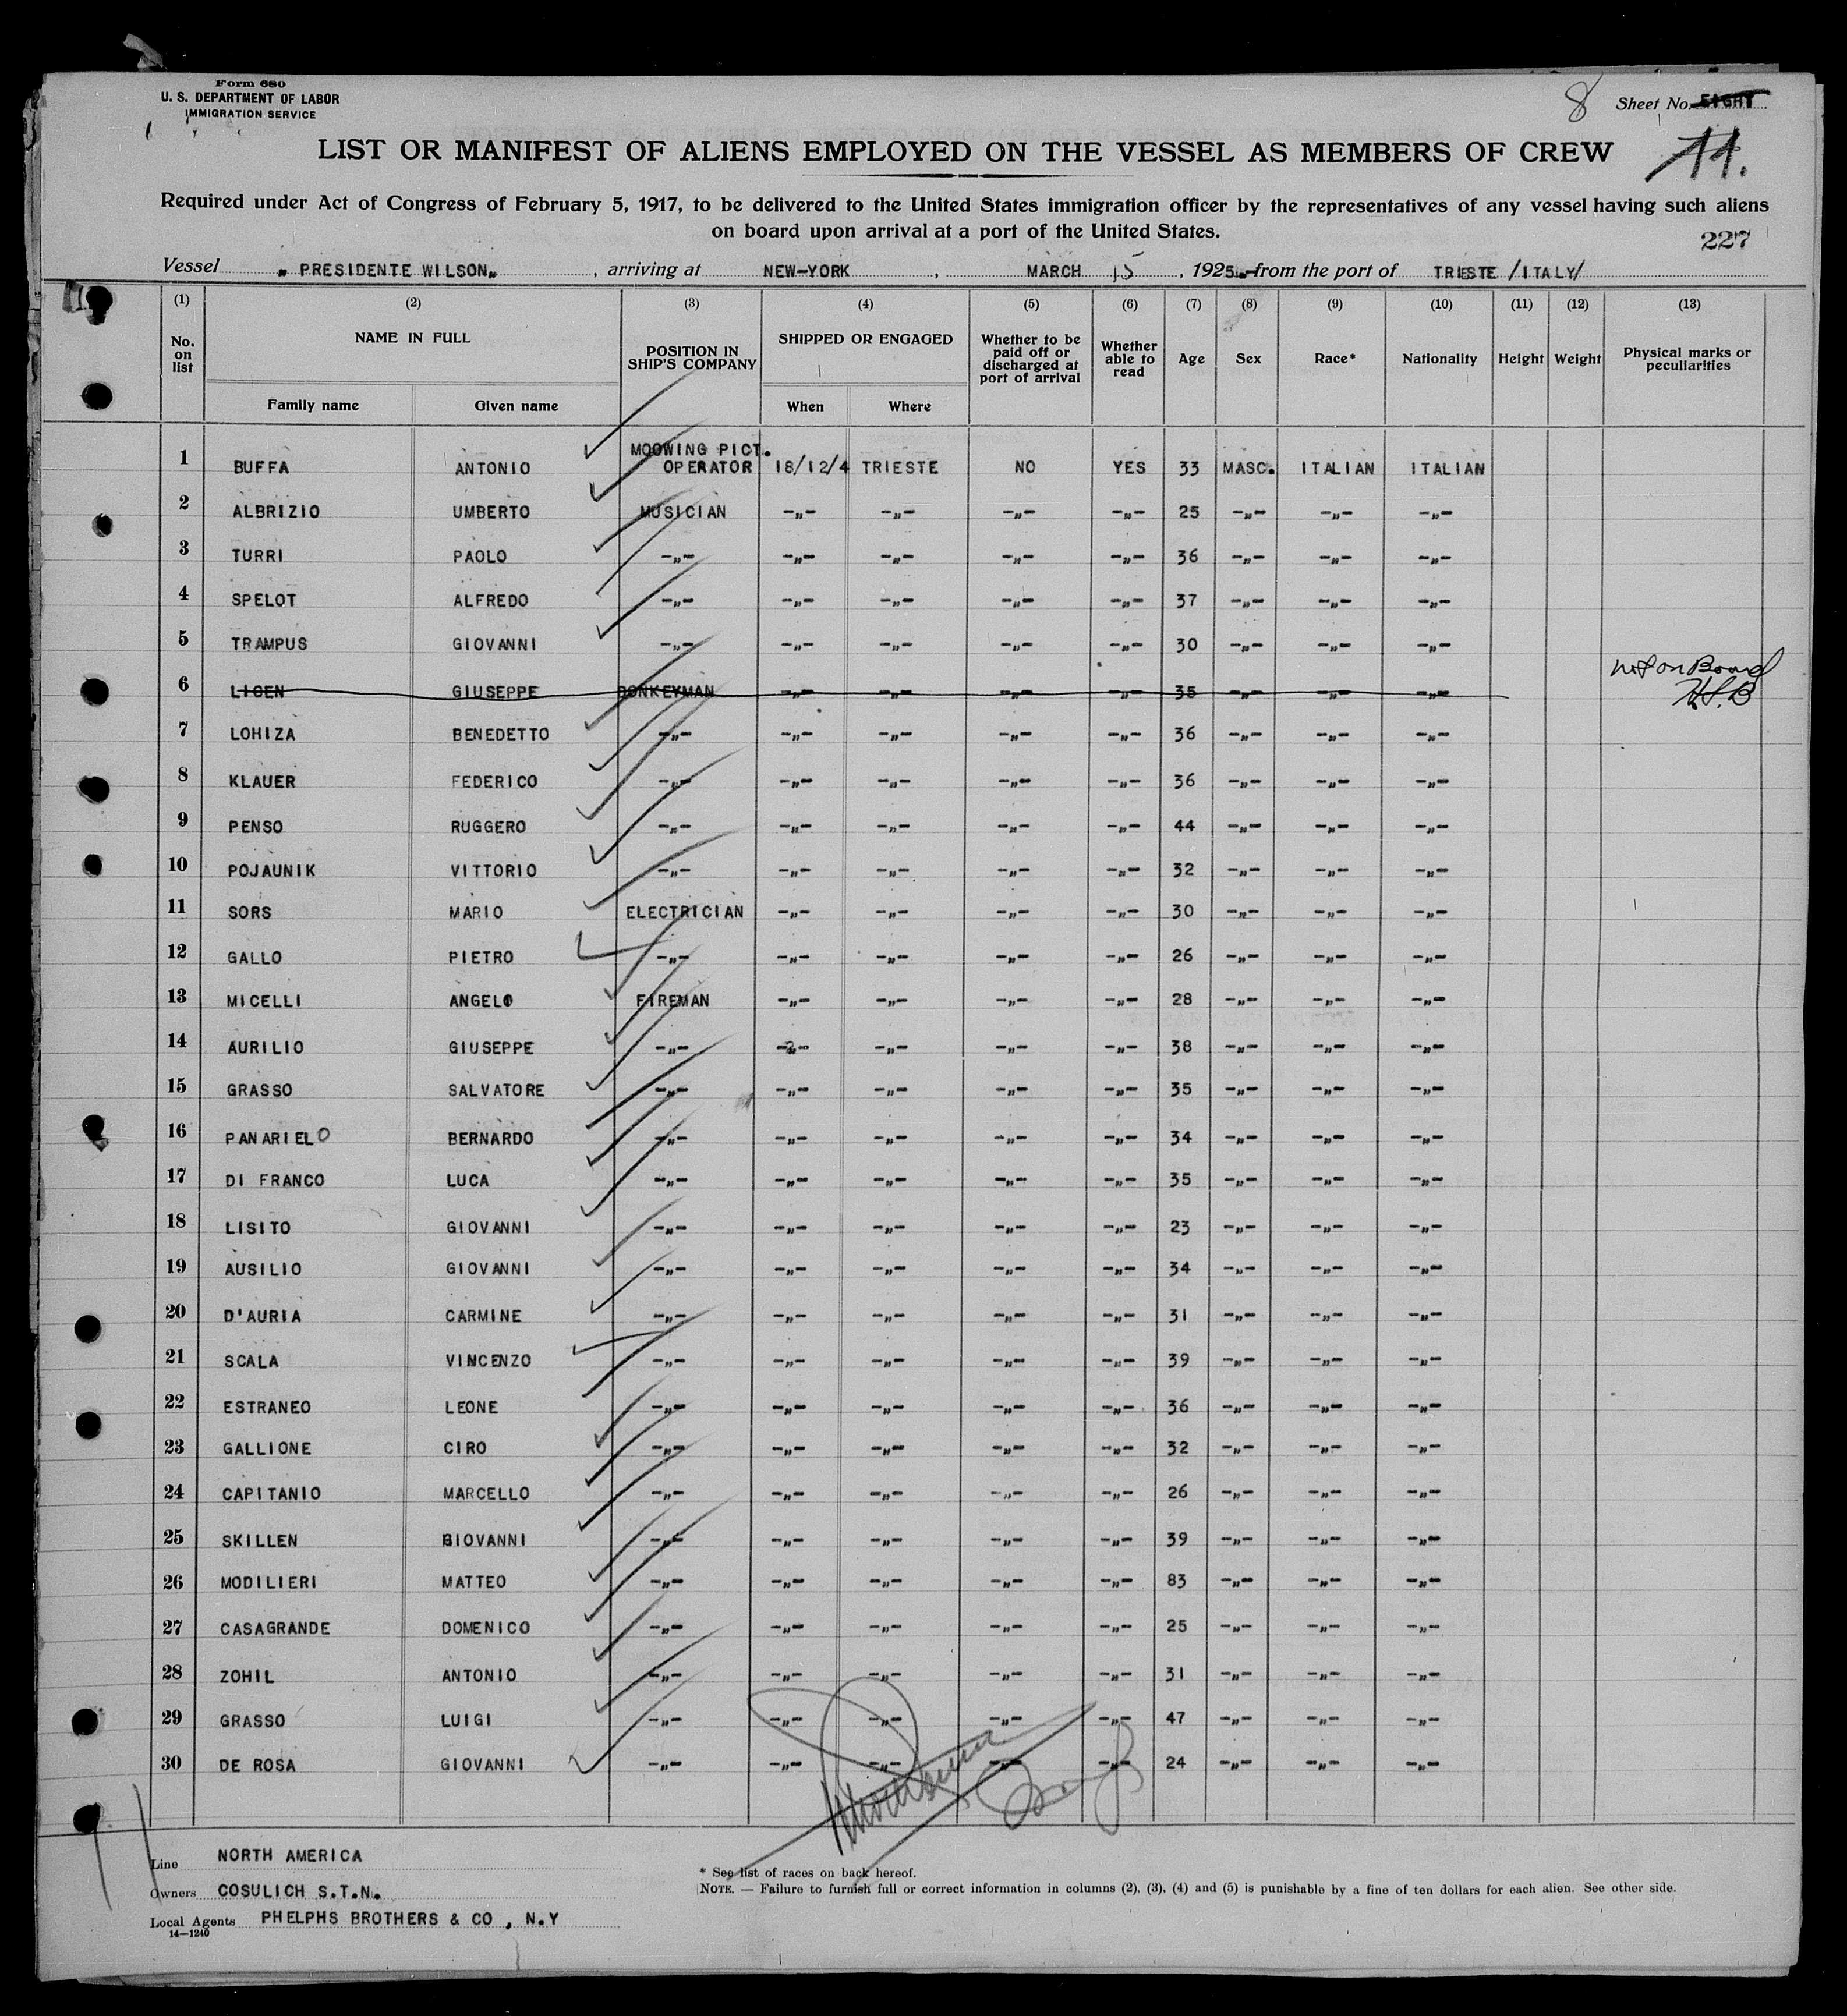 Form 680
U. S. DEPARTMENT OF LABOR
IMMIGRATION SERVICE
8 Sheet No. EIGHT
11.
LIST OR MANIFEST OF ALIENS EMPLOYED ON THE VESSEL AS MEMBERS OF CREW
Required under Act of Congress of February 5, 1917, to be delivered to the United States immigration officer by the representatives of any vessel having such aliens
on board upon arrival at a port of the United States.
227
Vessel „ PRESIDENTE WILSON„ , arriving at NEW-YORK , MARCH 15 , 1925.- from the port of TRIESTE /ITALY/
(1) (2) (3) (4) (5) (6) (7) (8) (9) (10) (11) (12) (13)
No. on list NAME IN FULL POSITION IN SHIP'S COMPANY SHIPPED OR ENGAGED Whether to be paid off or discharged at port of arrival Whether able to read Age Sex Race* Nationality Height Weight Physical marks or peculiarities
Family name Given name When Where
1 BUFFA ANTONIO MOOWING PICT. OPERATOR 18/12/4 TRIESTE NO YES 33 MASC. ITALIAN ITALIAN
2 ALBRIZIO UMBERTO MUSICIAN -„- -„- -„- -„- 25 -„- -„- -„-
3 TURRI PAOLO -„- -„- -„- -„- -„- 36 -„- -„- -„-
4 SPELOT ALFREDO -„- -„- -„- -„- -„- 37 -„- -„- -„-
5 TRAMPUS GIOVANNI -„- -„- -„- -„- -„- 30 -„- -„- -„-
6 LICEN GIUSEPPE DONKEYMAN -„- -„- -„- -„- 35 -„- -„- -„- not on Board H.S.B
7 LOHIZA BENEDETTO -„- -„- -„- -„- -„- 36 -„- -„- -„-
8 KLAUER FEDERICO -„- -„- -„- -„- -„- 36 -„- -„- -„-
9 PENSO RUGGERO -„- -„- -„- -„- -„- 44 -„- -„- -„-
10 POJAUNIK VITTORIO -„- -„- -„- -„- -„- 32 -„- -„- -„-
11 SORS MARIO ELECTRICIAN -„- -„- -„- -„- 30 -„- -„- -„-
12 GALLO PIETRO -„- -„- -„- -„- -„- 26 -„- -„- -„-
13 MICELLI ANGELO FIREMAN -„- -„- -„- -„- 28 -„- -„- -„-
14 AURILIO GIUSEPPE -„- -„- -„- -„- -„- 38 -„- -„- -„-
15 GRASSO SALVATORE -„- -„- -„- -„- -„- 35 -„- -„- -„-
16 PANARIELO BERNARDO -„- -„- -„- -„- -„- 34 -„- -„- -„-
17 DI FRANCO LUCA -„- -„- -„- -„- -„- 35 -„- -„- -„-
18 LISITO GIOVANNI -„- -„- -„- -„- -„- 23 -„- -„- -„-
19 AUSILIO GIOVANNI -„- -„- -„- -„- -„- 34 -„- -„- -„-
20 D'AURIA CARMINE -„- -„- -„- -„- -„- 31 -„- -„- -„-
21 SCALA VINCENZO -„- -„- -„- -„- -„- 39 -„- -„- -„-
22 ESTRANEO LEONE -„- -„- -„- -„- -„- 36 -„- -„- -„-
23 GALLIONE CIRO -„- -„- -„- -„- -„- 32 -„- -„- -„-
24 CAPITANIO MARCELLO -„- -„- -„- -„- -„- 26 -„- -„- -„-
25 SKILLEN GIOVANNI -„- -„- -„- -„- -„- 39 -„- -„- -„-
26 MODILIERI MATTEO -„- -„- -„- -„- -„- 83 -„- -„- -„-
27 CASAGRANDE DOMENICO -„- -„- -„- -„- -„- 25 -„- -„- -„-
28 ZOHIL ANTONIO -„- -„- -„- -„- -„- 31 -„- -„- -„-
29 GRASSO LUIGI -„- -„- -„- -„- -„- 47 -„- -„- -„-
30 DE ROSA GIOVANNI -„- -„- -„- -„- -„- 24 -„- -„- -„-
Line NORTH AMERICA
Owners COSULICH S.T.N.
Local Agents PHELPHS BROTHERS & CO , N.Y
14—1240
* See list of races on back hereof.
NOTE. — Failure to furnish full or correct information in columns (2), (3), (4) and (5) is punishable by a fine of ten dollars for each alien. See other side.